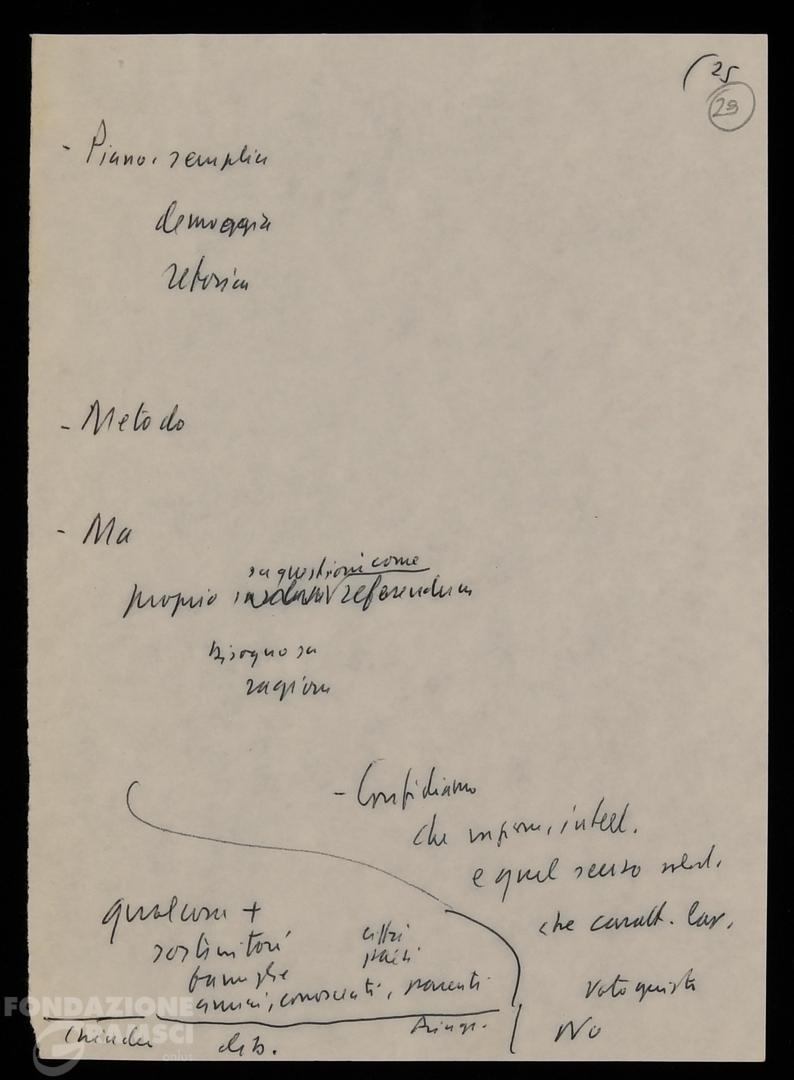 (25
29
- Piano. semplice
demagogia
retorica
- Metodo
- Ma
su questioni come
proprio referendum
bisogna
ragioni
- Confidiamo
che ragione, intell.
e quel senso
che caratt. lav.
voto giusto
No
qualcun +
sostenitori
altri
paesi
famiglie
amici, conoscenti, parenti
Chiudere dib.
Ringr.
FONDAZIONE
GRAMSCI
onlus